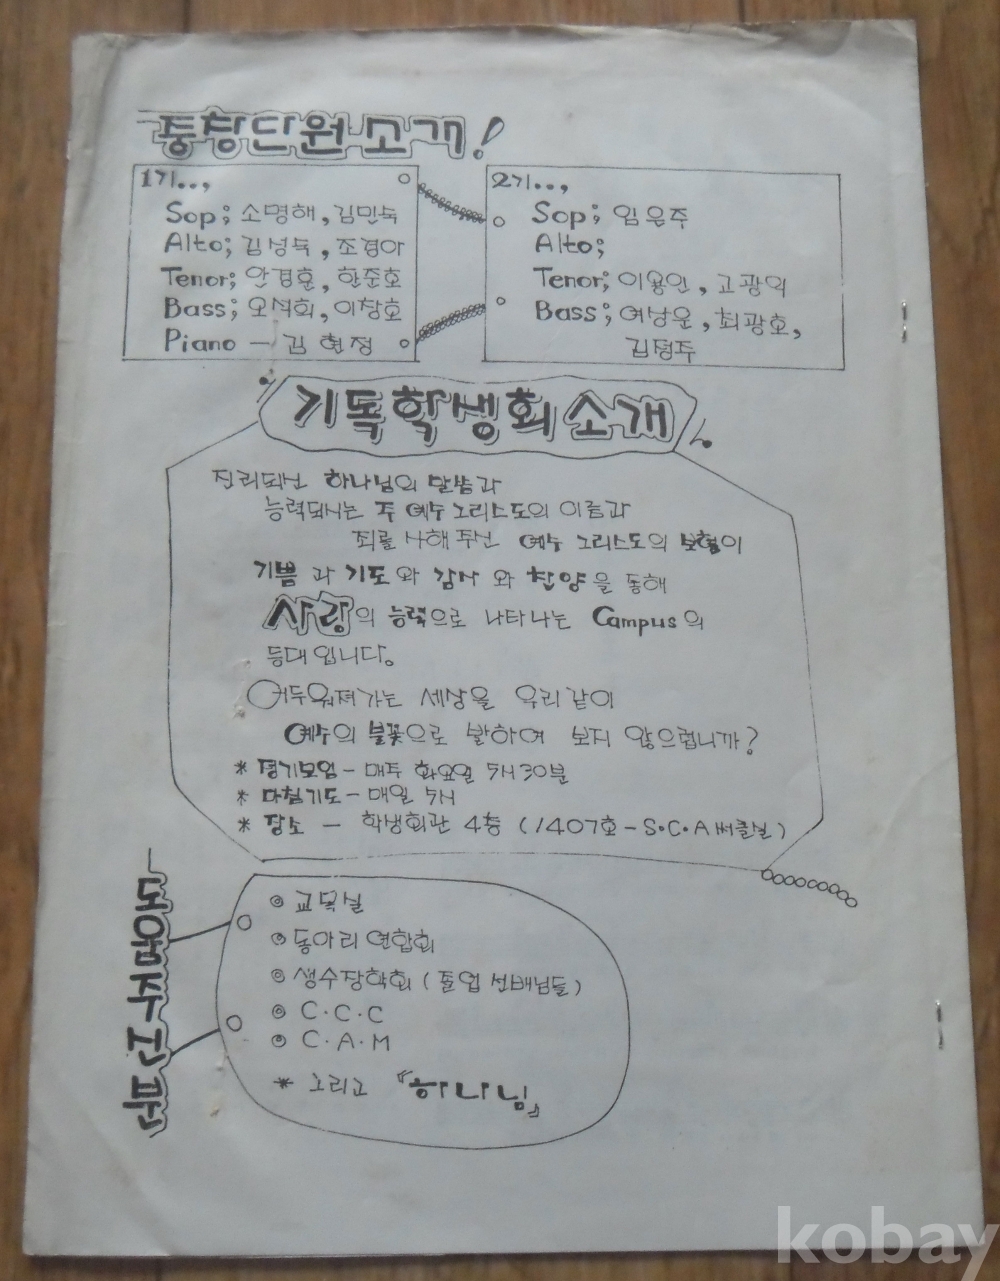 중창단원 소개!
1기..,
Sop; 소명해, 김민숙
Alto; 김성숙, 조경아
Tenor; 안경훈, 한준호
Bass; 오석회, 이창호
Piano - 김현정
2기..,
Sop; 임은주
Alto;
Tenor; 이용인, 고광익
Bass; 여상운, 최광호,
김정주
기독학생회 소개
진리되신 하나님의 말씀과
능력되시는 주 예수 그리스도의 이름과
죄를 사해 주신 예수 그리스도의 보혈이
기쁨과 기도와 감사와 찬양을 통해
사랑의 능력으로 나타나는 Campus의
등대입니다.
어두워져가는 세상을 우리같이
예수의 불꽃으로 발하여 보지 않으렵니까?
* 정기모임 - 매주 화요일 5H 30분
* 마침기도 - 매일 5H
* 장소 - 학생회관 4층 (1407호 - S.C.A 써클실)
도움주신 분
◎ 교목실
◎ 동아리 연합회
◎ 생수장학회 (졸업 선배님들)
◎ C.C.C
◎ C.A.M
* 그리고 『하나님』
kobay